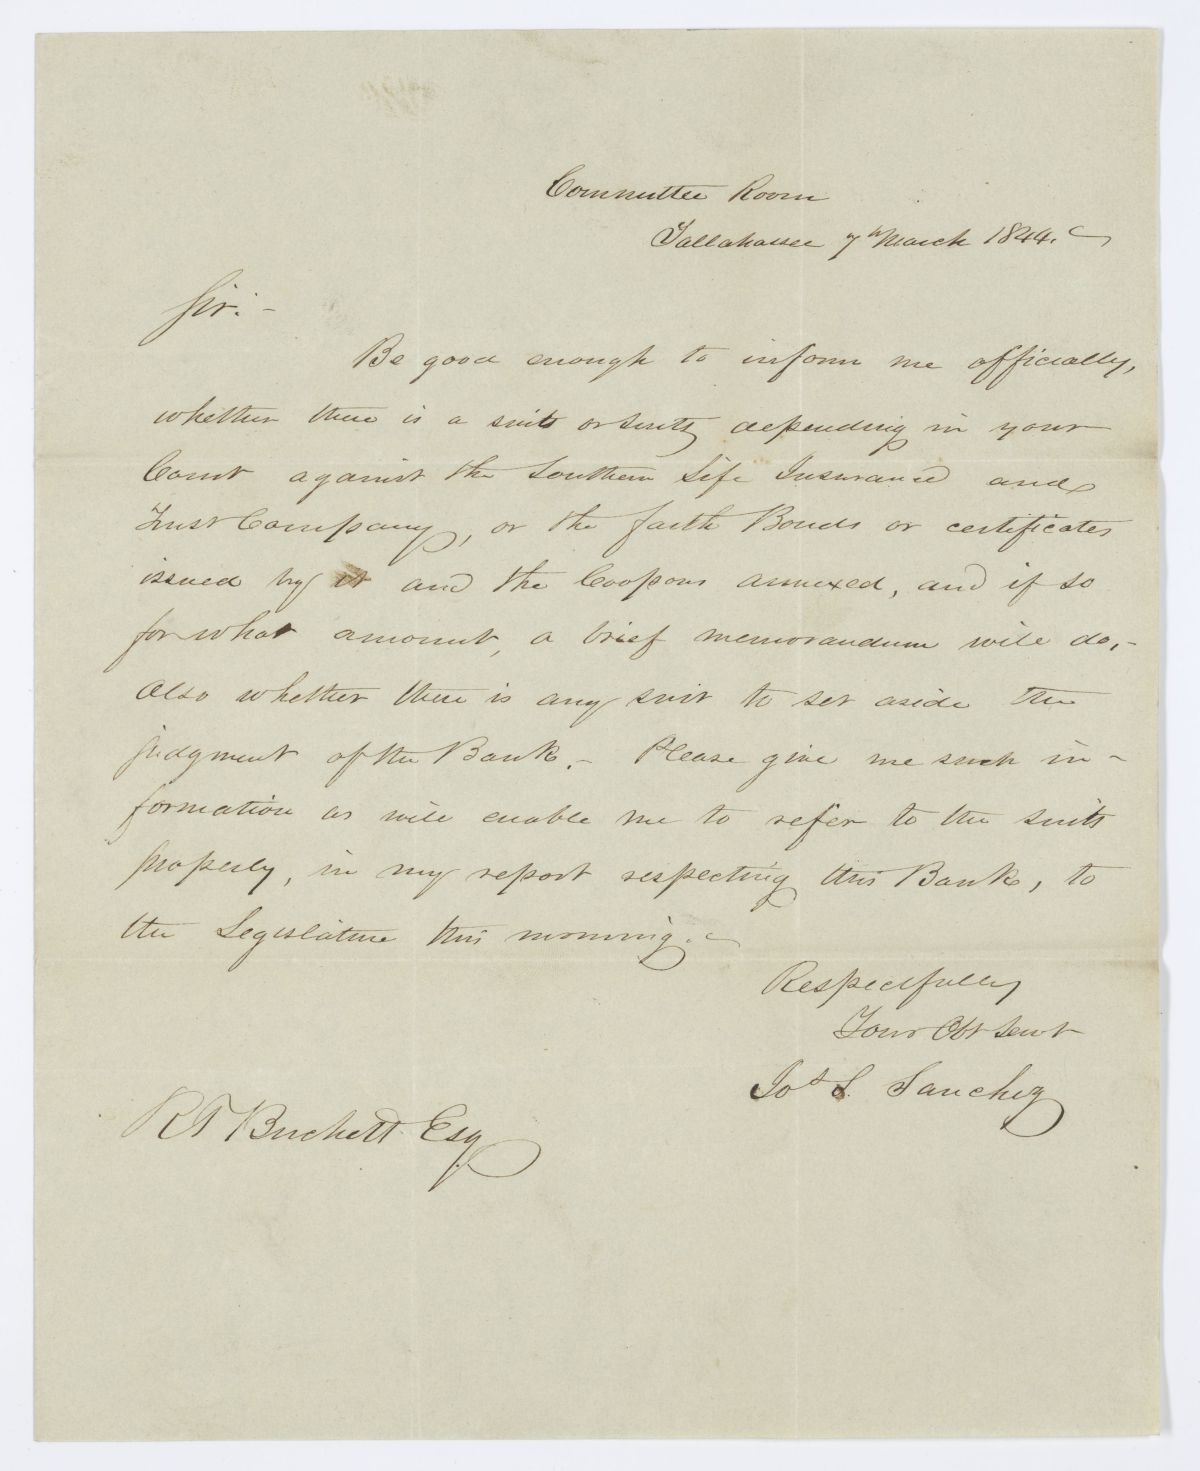 Committee Room
Tallahassee 7th March 1844.
Sir:-
Be good enough to inform me officially,
whether there is a suit or suits depending in your
Court against the Southern Life Insurance and
Trust Company, or the faith Bonds or certificates
issued by it and the Coopons annexed, and if so
for what amount, a brief memorandum will do,-
Also whether there is any suit to set aside the
judgment of the Bank.- Please give me such in-
formation as will enable me to refer to the suits
properly, in my report respecting this Bank, to
the Legislature this morning.
Respectfully
Your Obt Servt
Jos S. Sanchez
R T Birchett Esq